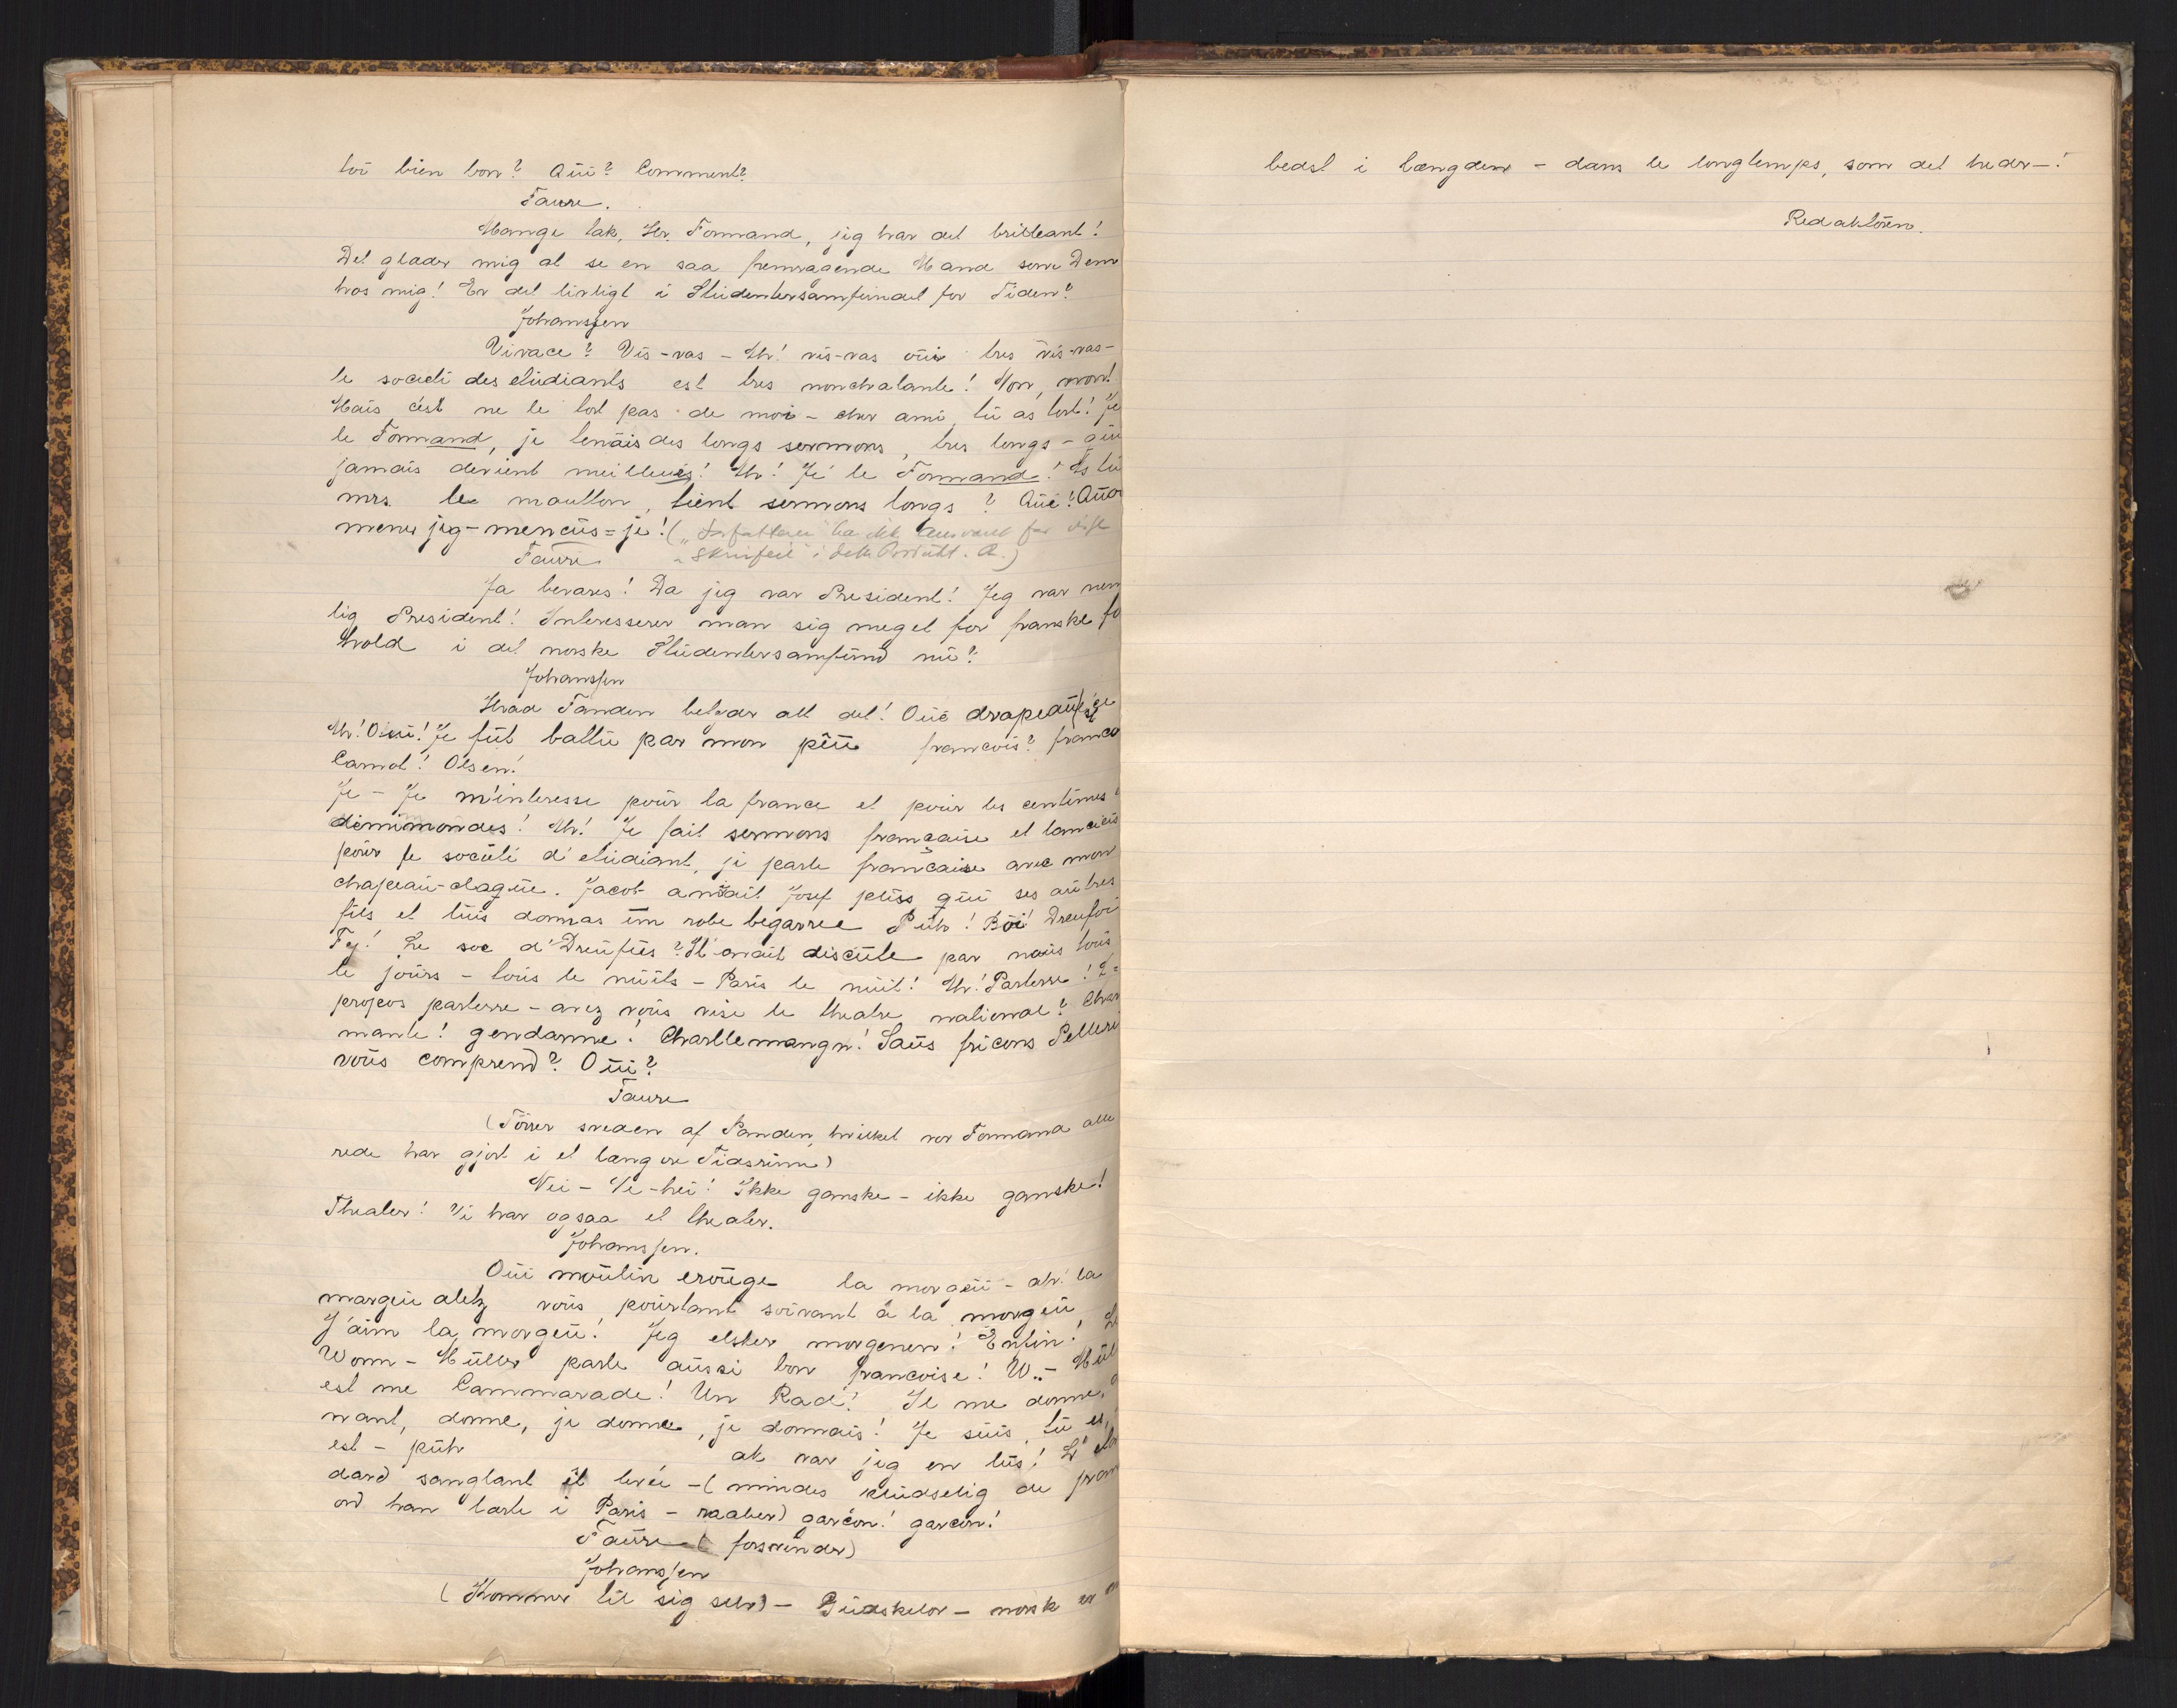 toi bien bon? Oüi? Comment?
Faure.
Mange tak, Hr. Formand, jeg har det brilleant!
Det glæder mig at se en saa fremragende Mand som Dem
hos mig! Er det livligt i Stüdentersamfündet for Tiden?
Johanssen
Vivace? Vis-vas - Hr! vis-vas oüi tres vis-vas-
le societi des etüdiants est tres nonchalante! Non, non!
Mais c'est ne le tort pas de moi - cher ami, tü as tort! Je
le Formand, je tenäis des longs sermons, tres longs - qüi
jamais devient meilleürs! Hr! Je le Formand! Es tü
mrs. le moutton, tient sermons longs? Oüi!
mener jeg - mencüs = je! („Forfatteren har ikke Ansvaret for
Skrivfeil" i dette R.)
Faure
Ja bevares! Da jeg var President! Jeg var nem
lig President! Interesserer man sig meget for franske fo
hold i det norske Stüdentersamfünd nü?
Johanssen
Hvad Fanden betyder alt det! Oüi drapeaü
Hr! Oüi! Je füt battü par mon püü francois? franco
Carnot! Olsen!
Je - Je m'interesse poür la france et poür les centimes
dimimondes! Hr! Je fait sermons française et
poür le sociüti d'etüdiant, je parle française avec mon
chapeaü-claqüe. Jacob amait Josef plüss qüi ses aütres
fils et lüis donnas ün robe begarree Püh! Böi! Dreufoi
Fy! Le soc d'Dreüfüs? Il avait discüte par noüs toüs
le joürs - toüs le nüits - Paris le nüit! Hr! Parterre!
propos parterre - avez voüs vise le theatre national? Char
mante! gendarme! Charllemangn! Saüs fricons Pelleri
voüs comprend? Oüi?
Faure
(Törrer sveden af Panden, hvilket vor Formand alle
rede har gjort i et længere Tidsrüm)
Nei - Ne-hei! Ikke ganske - ikke ganske!
Theater! Vi har ogsaa et theater.
Johanssen.
Oüi moülin eroüge la morgüi - ah! la
margüi aletz voüs poürtant soivant à la morgüi
J'aim la morgüi! Jeg elsker morgenen! Enfin! Le
Worm-Müller parle aüssi bon francoise! W.-Mül
est me Cammarade! Un Rad! Je me donne,
nant, donne, je donne, je donnais! Je süis, tü es,
est - püh ak var jeg en lüs! L'eten
dard sanglant it levée - (mindes plüdselig de fran
ord han lærte i Paris - raaber) garcon! garcon!
Faüre (forsvinder)
Johanssen
(Kommer til sig selv) - Güdskelov - norsk er
bedst i Længden - dans le longtemps, som det heder-!
Redaktören.